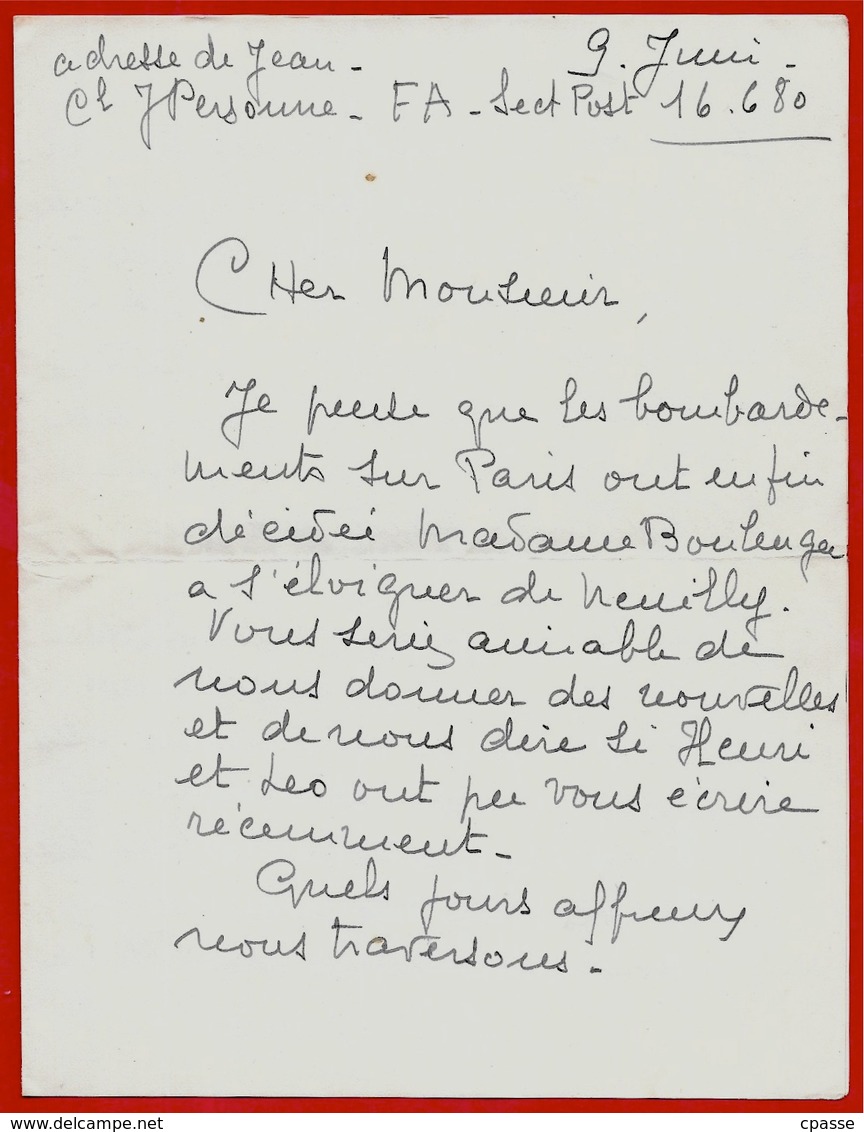 adresse de Jean - 9. Juin -
Cl J Personne - F A - Sect Post 16.680
CHer Monsieur,
Je pense que les bombarde-
ments sur Paris ont enfin
décidé Madame Boulenger
a s'éloigner de Neuilly.
Vous seriez aimable de
nous donner des nouvelles
et de nous dire si Henri
et Leo ont pu vous écrire
récemment -
Quels jours affreux
nous traversons -
delcampe.net
cpasse